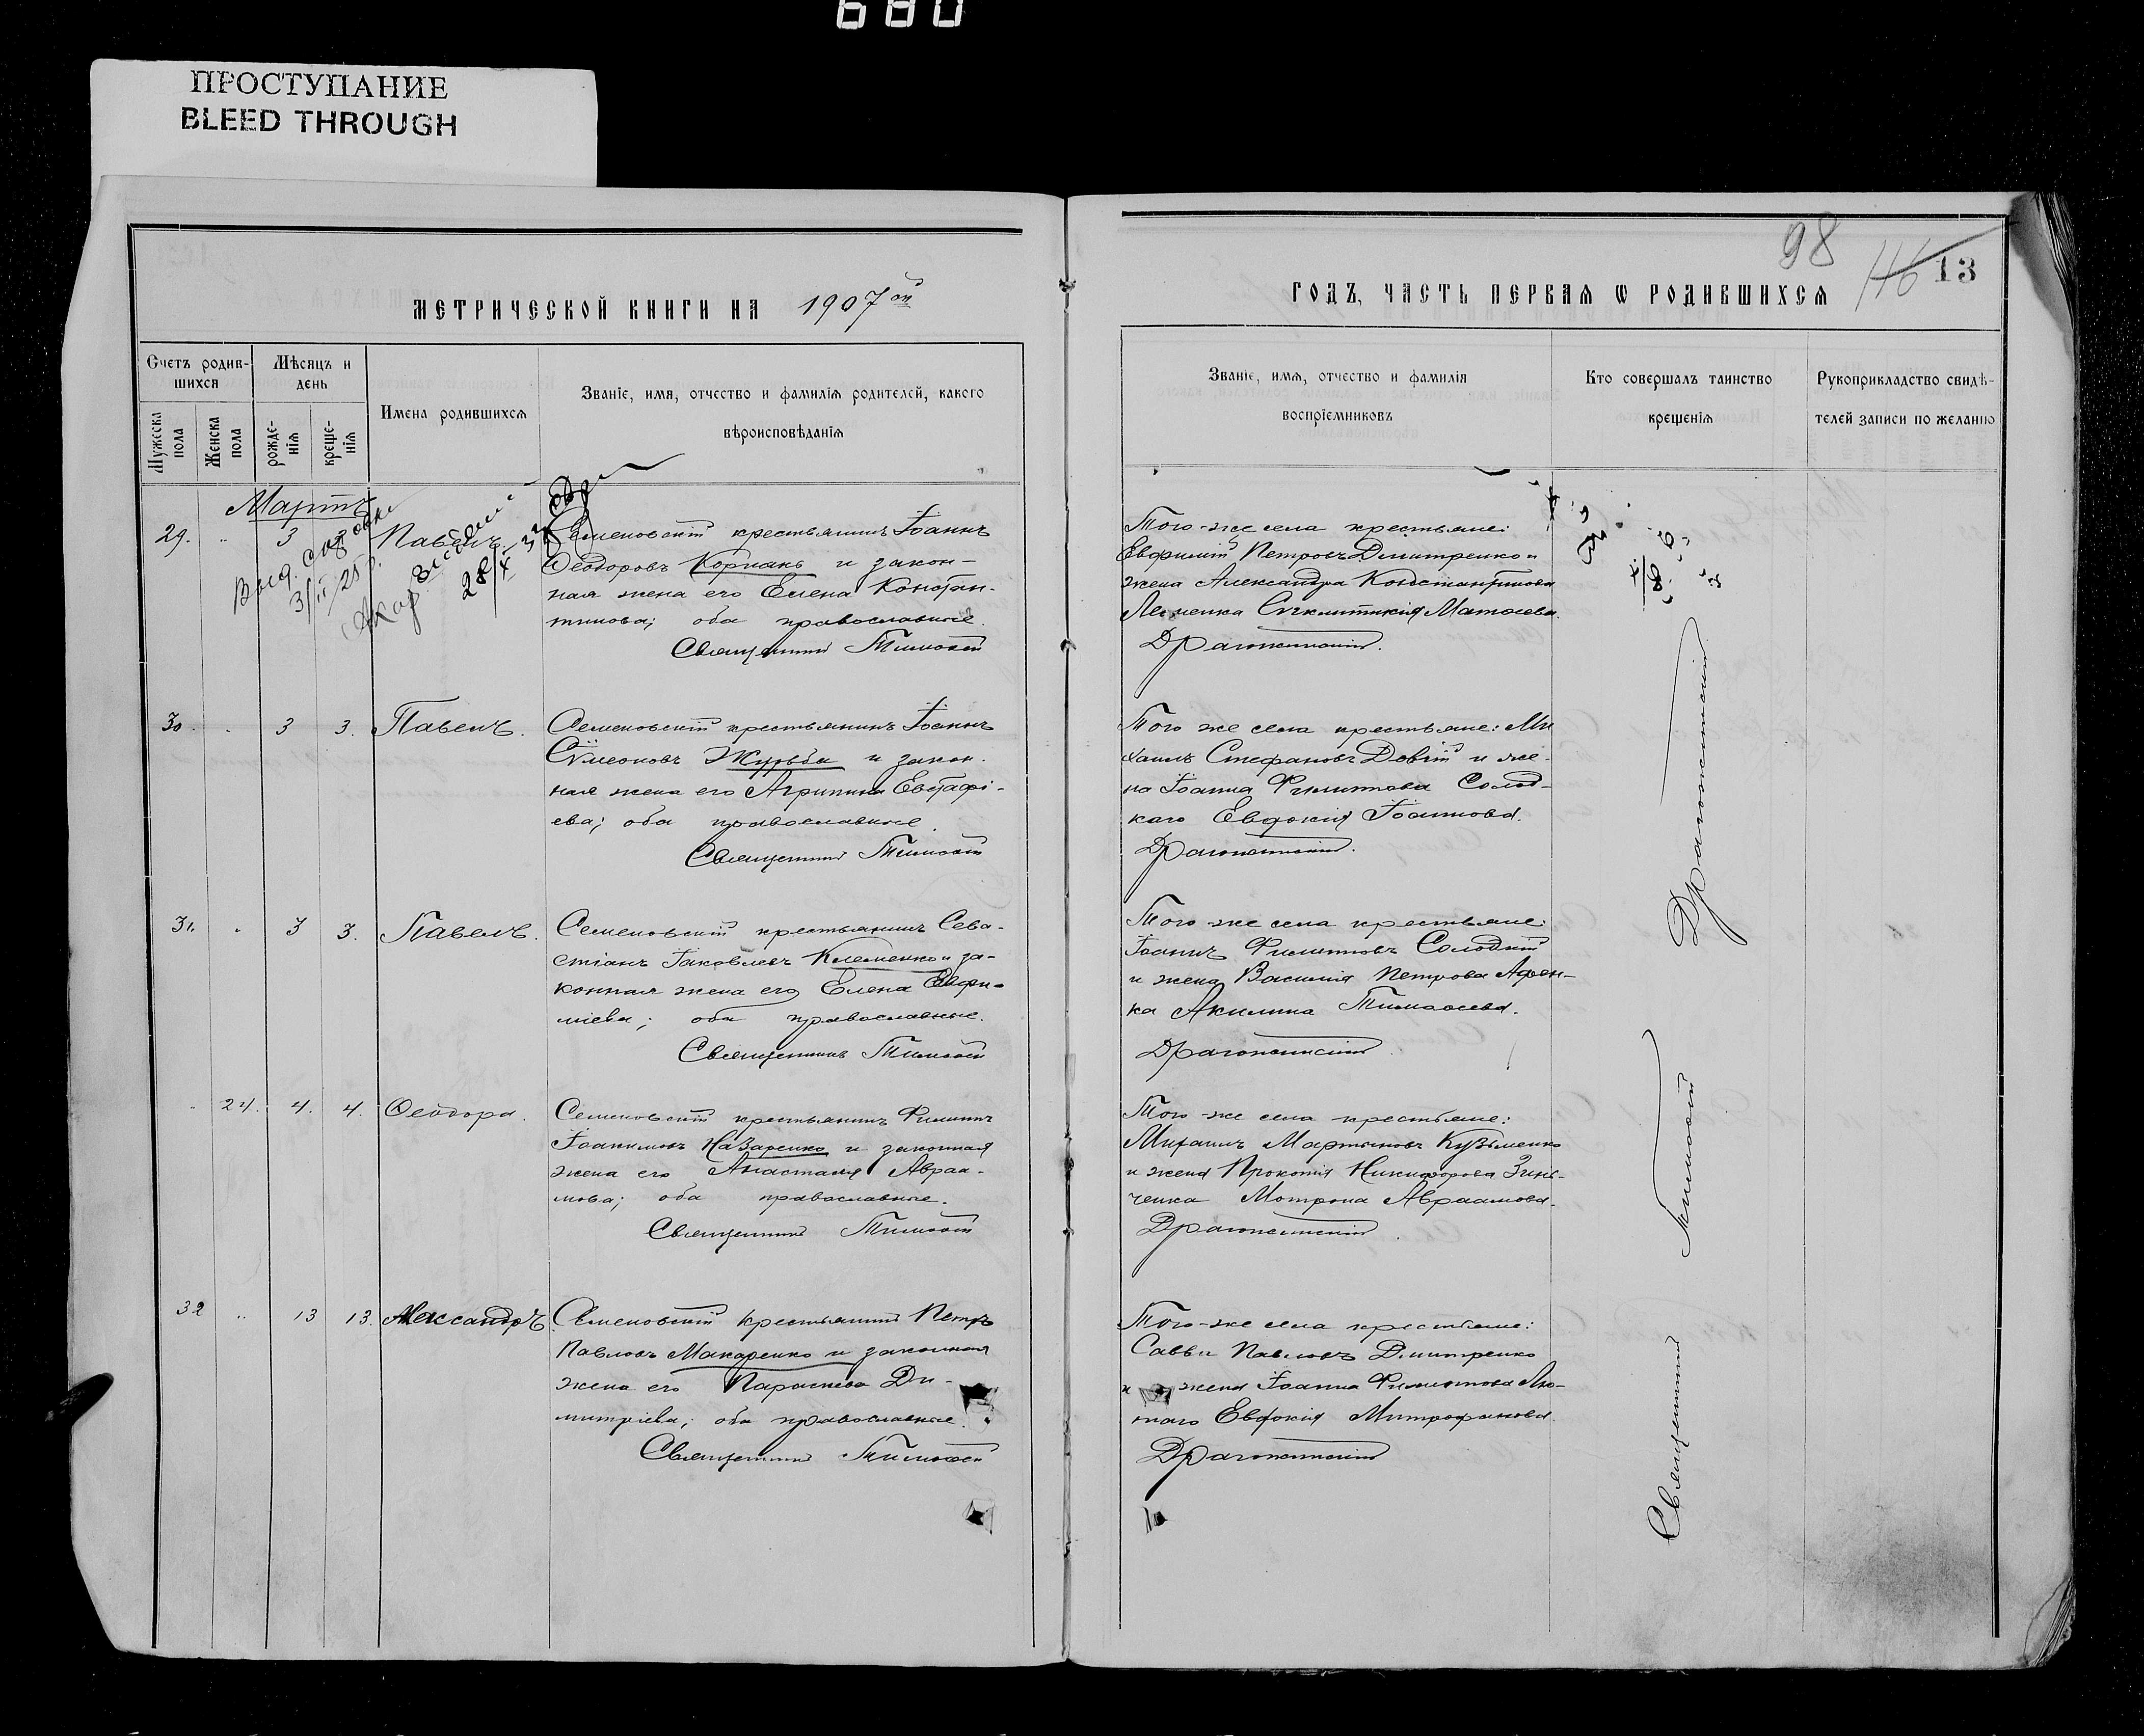 680
ПРОСТУПАНИЕ
BLEED THROUGH
МЕТРИЧЕСКОЙ КНИГИ НА 1907 ой
Счетъ родив-
шихся
Мѣсяцъ и
день
Имена родившихся
Званіе, имя, отчество и фамилія родителей, какого
вѣроисповѣданія
Мужеска
пола
Женска
пола
рожде-
нія
креще-
нія
Мартъ
29. " 3 3 Павелъ
Семеновскій крестьянинъ Іоаннъ
Ѳеодоровъ Корпань и закон-
ная жена его Елена Констан-
тинова; оба православные.
Священникъ Тимоѳей
30. " 3 3. Павелъ.
Семеновскій крестьянинъ Іоаннъ
Сѵмеоновъ Журьба и закон.
ная жена его Агрипина Евстафі-
ева; оба православные.
Священникъ Тимоѳей
31. " 3 3. Павелъ.
Семеновскій крестьянинъ Сева-
стіанъ Іаковлевъ Клеменко и за-
конная жена его Елена Евфи-
міева; оба православные.
Священникъ Тимоѳей
" 24. 4. 4. Ѳеодора.
Семеновскій крестьянинъ Филиппъ
Іоакимовъ Назаренко и законная
жена его Анастасія Авраа-
мова; оба православные.
Священникъ Тимоѳей
32 " 13 13. Александръ
Семеновскій крестьянинъ Петръ
Павловъ Макаренко и законная
жена его Параскева Ди-
митріева; оба православные.
Священникъ Тимоѳей
98
116 13
ГОДЪ, ЧАСТЬ ПЕРВАЯ Ѡ РОДИВШИХСЯ
Званіе, имя, отчество и фамилія
воспріемниковъ
Кто совершалъ таинство
крещенія
Рукоприкладство свидѣ-
телей записи по желанію
Того-же села крестьяне:
Евфимій Петровъ Дмитренко и
жена Александра Константинова
Сѵнклитикія Матѳеева.
Драгожинскій.
Того же села крестьяне: Ми
хаилъ Стефановъ Довгій и же-
на Іоанна Филиппова Солод-
каго Евдокія Іоаннова.
Драгожинскій.
Того-же села крестьяне:
Іоаннъ Филипповъ Солодкій
и жена Василія Петрова Афен-
ка Акилина Тимоѳеева.
Драгожинскій.
Того-же села крестьяне:
Михаилъ Мартыновъ Кузьменко
и жена Прокопія Никифорова Зинь-
ченка Мотрона Авраамова.
Драгожинскій.
Того-же села крестьяне:
Савва Павловъ Дмитренко
и жена Іоанна Филиппова Лю-
таго Евдокія Митрофанова.
Драгожинскій
Священникъ Тимоѳей Драгожинскій